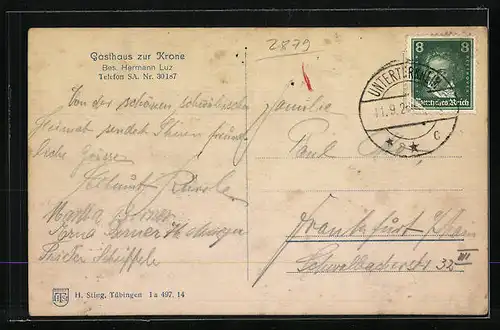 Gasthaus zur Krone
Bes. Hermann Luz
Telefon SA. Nr. 30187
2879
Von der schönen, schwäbischen
Heimat sendet Ihnen freund-
liche Grüsse
Helmut
Martha
Erna
Familie
Paul
Frankfurt / Main
Schwalbacherstr 32 III
8 8
Deutsches Reich
UNTERTÜRKHEIM
11.9.2
* 2 *
c
H. Sting, Tübingen 1a 497. 14